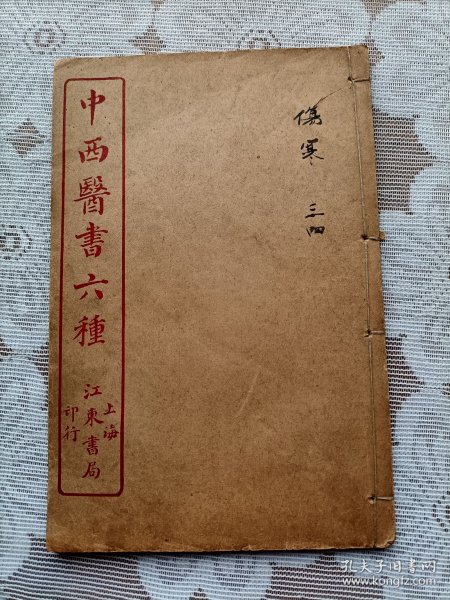 傷寒 三四
中西醫書六種
上海
江東書局
印行
孔夫子旧书网
www.kongfz.com